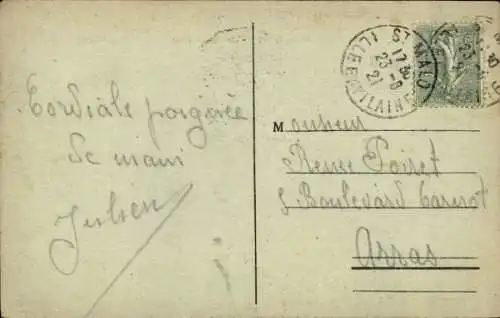 Cordiale poignée
de main
Julien
St MALO
ILLE-ET-VILAINE
17 30
23 -8
21
Monsieur
René Poiret
Boulevard Carnot
Arras